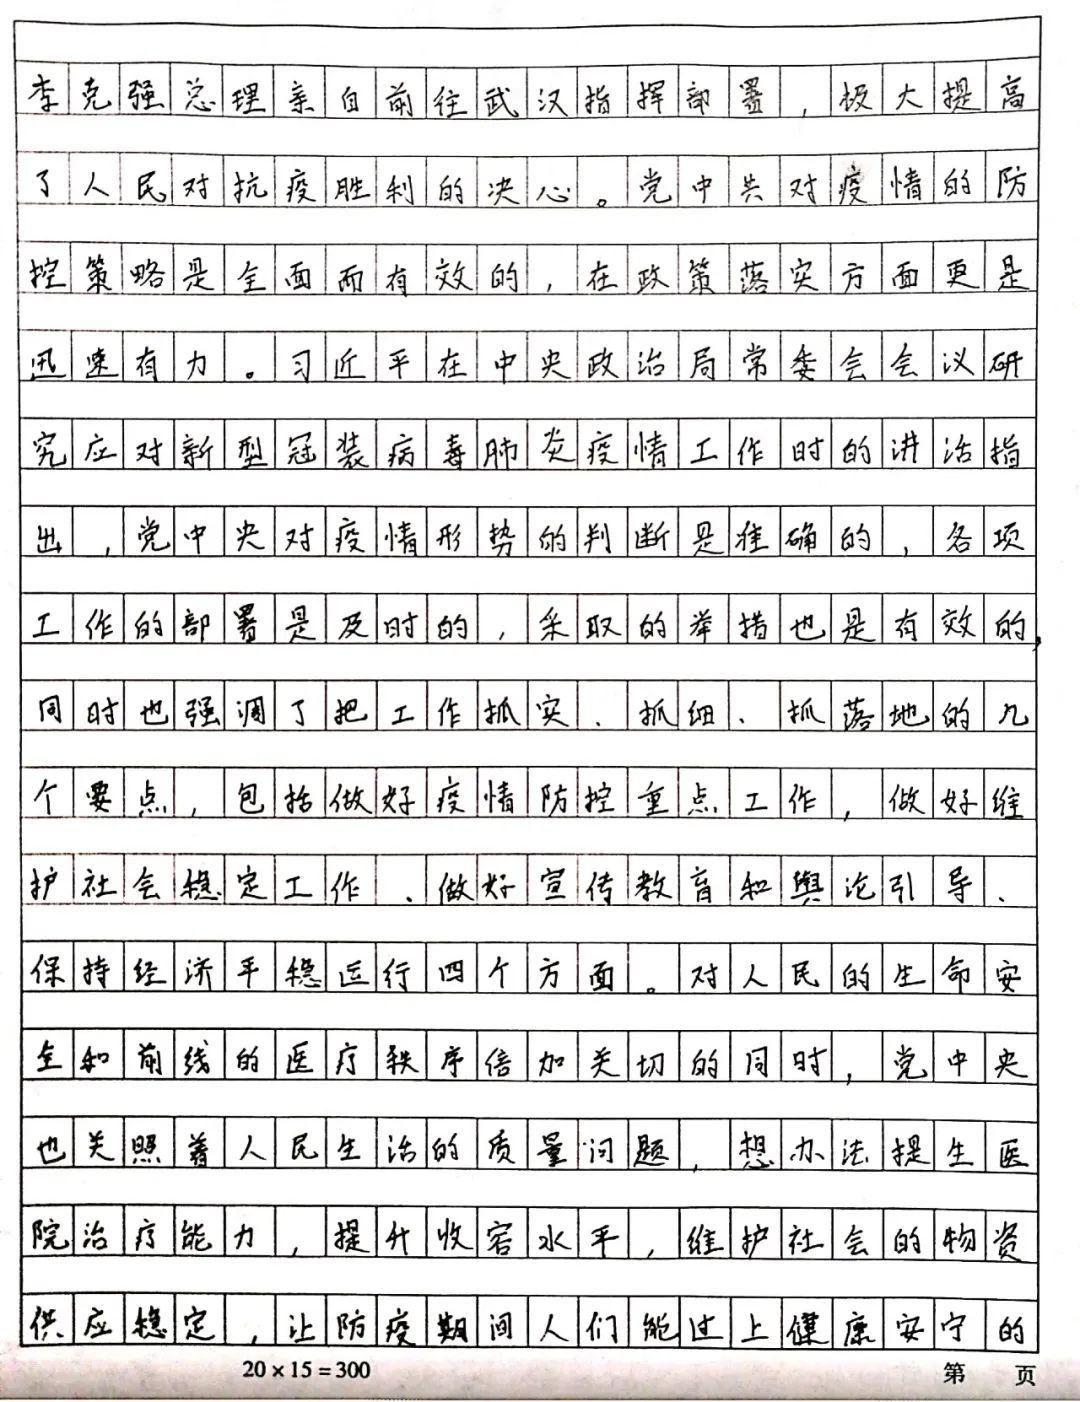 李克强总理亲自前往武汉指挥部署，极大提高
了人民对抗疫胜利的决心。党中共对疫情的防
控策略是全面而有效的，在政策落实方面更是
迅速有力。习近平在中央政治局常委会会议研
究应对新型冠装病毒肺炎疫情工作时的讲治指
出，党中央对疫情形势的判断是准确的，各项
工作的部署是及时的，采取的举措也是有效的，
同时也强调了把工作抓实、抓细、抓落地的几
个要点，包括做好疫情防控重点工作，做好维
护社会稳定工作、做好宣传教育和舆论引导、
保持经济平稳运行四个方面。对人民的生命安
全和前线的医疗秩序倍加关切的同时，党中央
也关照着人民生活的质量问题，想办法提生医
院治疗能力，提升收容水平，维护社会的物资
供应稳定，让防疫期间人们能过上健康安宁的
20×15=300
第 页